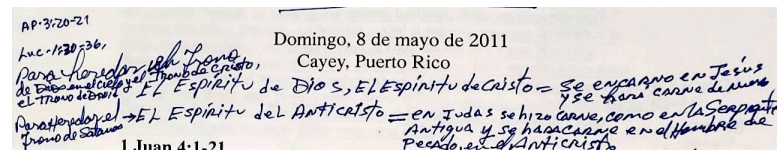 AP. 3:20-21
Luc. 1:30-36,
Domingo, 8 de mayo de 2011
Cayey, Puerto Rico
Para heredar un Trono
de Dios en el cielo y el TRONO de Cristo,
el TRONO de David EL ESPíRitu de Dios, EL Espíritu de Cristo = SE ENCARNO EN JESÚS
y se hará carne de nuevo
Para Heredar el → EL Espíritu del Anticristo = en Judas se hizo carne, como en la Serpiente
Trono de Satanás
Antigua y se hará carne en el Hombre de
Pecado, en el Anticristo
1 Juan 4:1-21